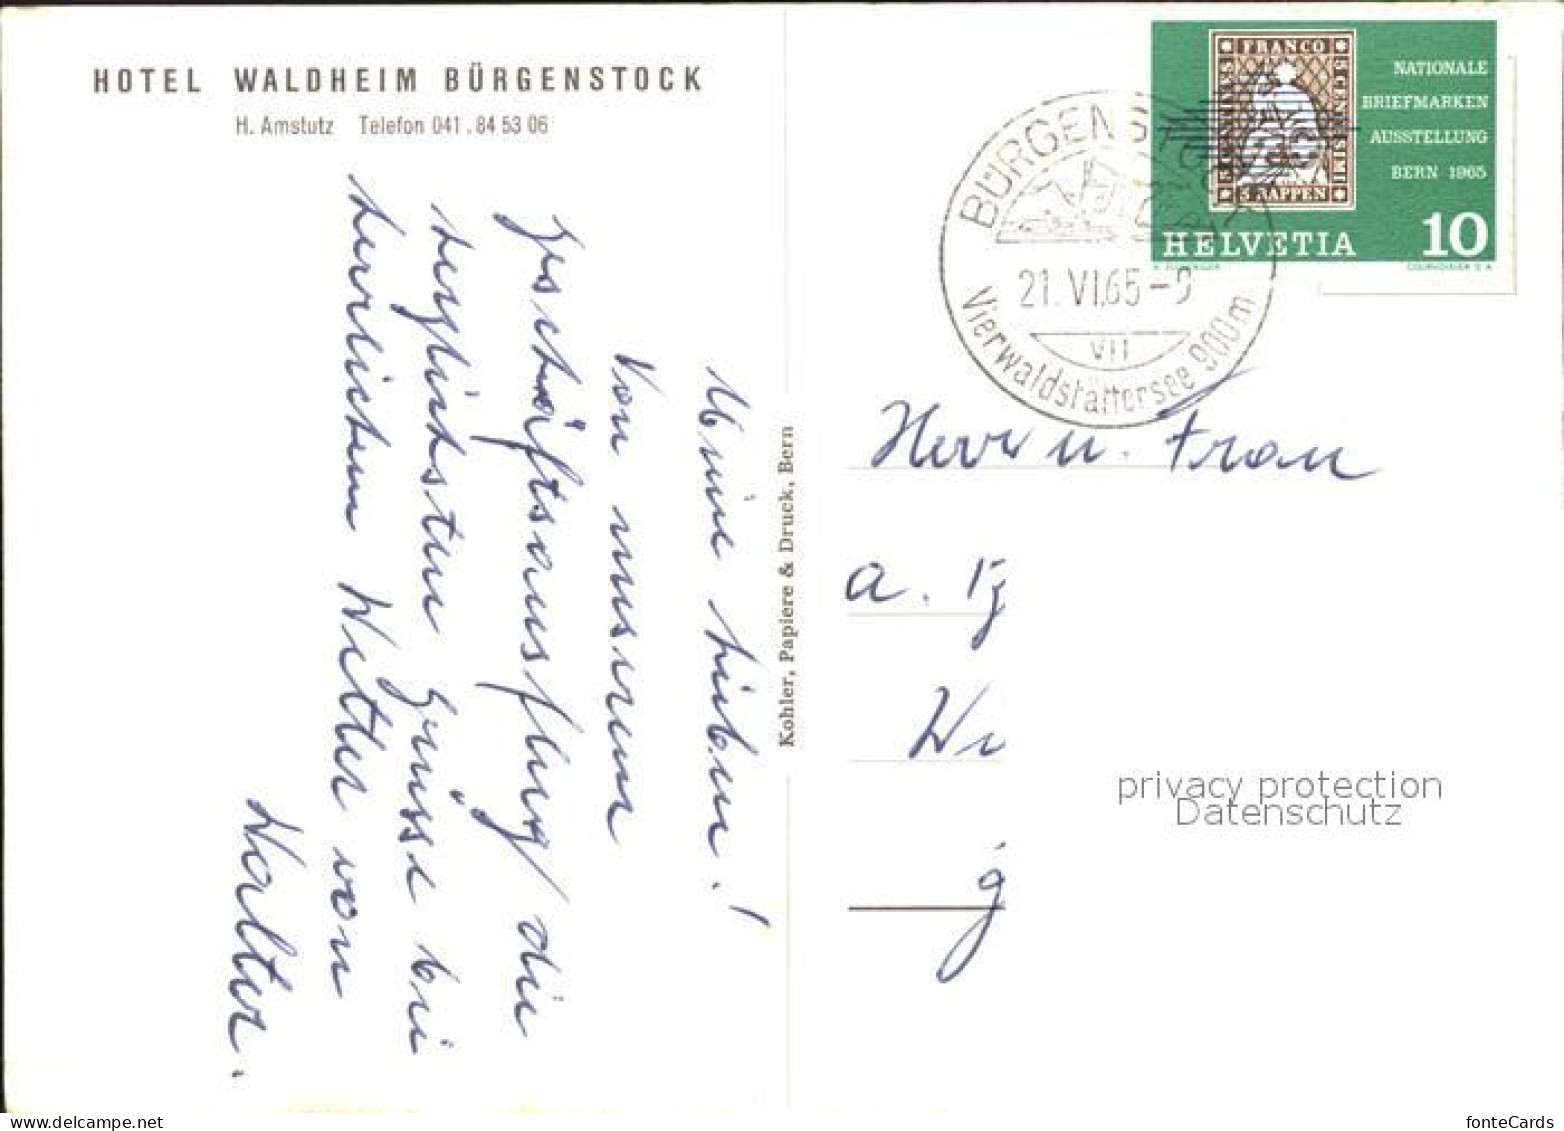 HOTEL WALDHEIM BÜRGENSTOCK
H. Amstutz Telefon 041.84 53 06
Meine lieben!
Von unserem
Geschäftsausflug die
herzlichsten Grüsse bei
herrlichem Wetter von
Walter.
Kohler, Papiere & Druck, Bern
FRANCO
5 RAPPEN
NATIONALE
BRIEFMARKEN
AUSSTELLUNG
BERN 1965
HELVETIA 10
COURVOISIER S.A.
BÜRGENSTOCK
21.VI.65-9
VII
Vierwaldstättersee 900m
Herr u. Frau
a.
privacy protection
Datenschutz
fonteCards